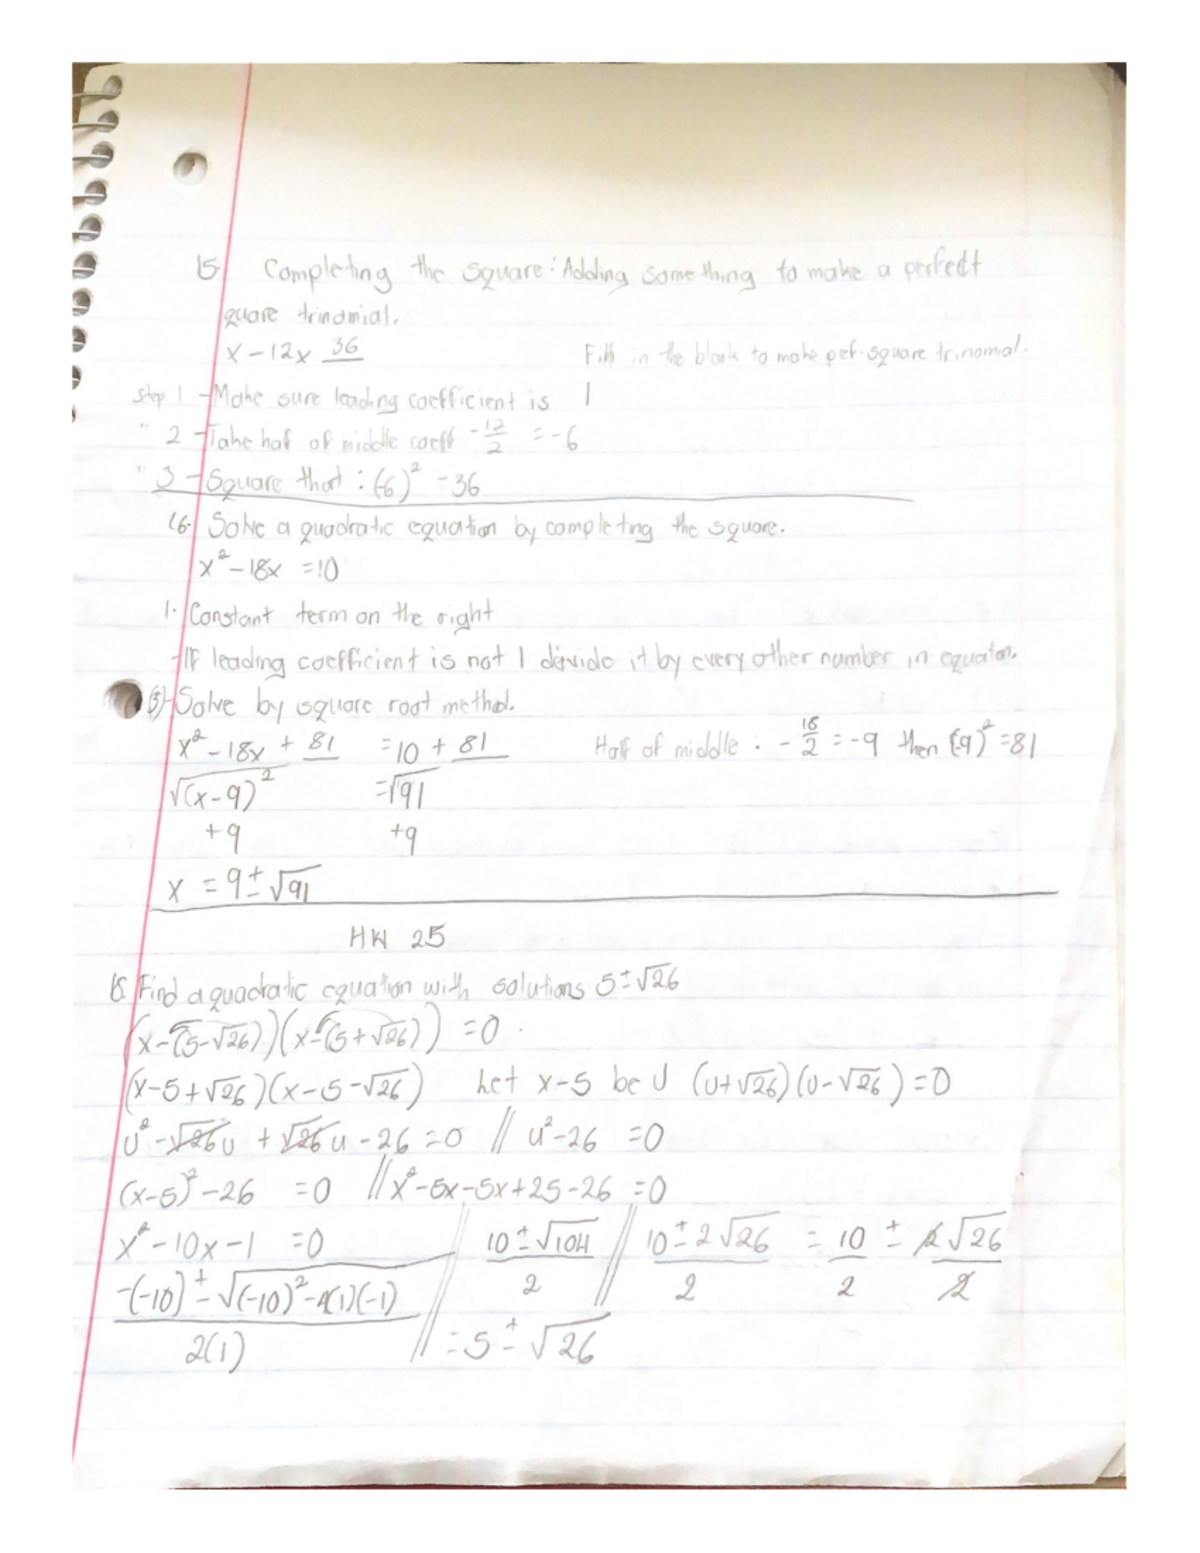 15. Completing the square: Adding something to make a perfect
quare trinomial.
x - 12x 36 Fill in the blank to make pef. square trinomial.
Step 1 - Make sure leading coefficient is 1
" 2 - Take half of middle coeff -12/2 = -6
" 3 - Square that : (-6)² - 36
16. Solve a quadratic equation by completing the square.
x² - 18x = 10
1. Constant term on the right
- If leading coefficient is not 1 divide it by every other number in equaton.
3) - Solve by square root method.
x² - 18x + 81 = 10 + 81 Half of middle : - 18/2 = -9 then (-9)² = 81
√(x-9)² = √91
+9 +9
x = 9 ± √91
HW 25
18. Find a quadratic equation with solutions 5 ± √26
(x - (5 - √26))(x - (5 + √26)) = 0
(x - 5 + √26)(x - 5 - √26) Let x - 5 be U (U + √26)(U - √26) = 0
U² - √26 U + √26 U - 26 = 0 // U² - 26 = 0
(x-5)² - 26 = 0 // x² - 5x - 5x + 25 - 26 = 0
x² - 10x - 1 = 0 // 10 ± √104 / 2 // 10 ± 2√26 / 2 = 10/2 ± 2√26/2
-(-10) ± √(-10)² - 4(1)(-1) / 2(1) // = 5 ± √26